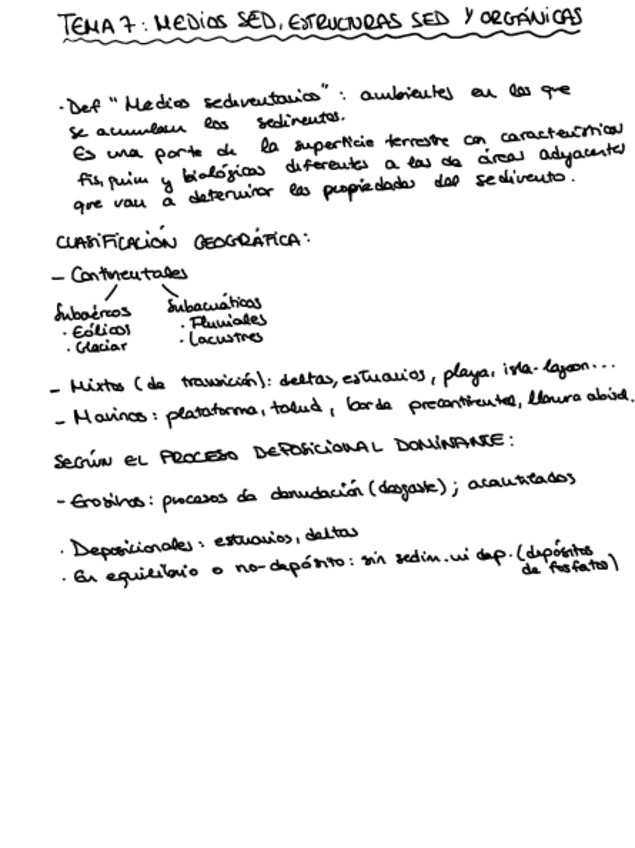 TEMA 7: MEDIOS SED, ESTRUCTURAS SED Y ORGÁNICAS
· Def "Medios sedimentarios": ambientes en los que
se acumulan los sedimentos.
Es una parte de la superficie terrestre con características
fís, quim y biológicas diferentes a las de áreas adyacentes
que van a determinar las propiedades del sedimento.
CLASIFICACIÓN GEOGRÁFICA:
- Continentales
Subaéreos Subacuáticos
· Eólicos · Fluviales
· Glaciar · Lacustres
- Mixtos (de transición): deltas, estuarios, playa, isla-lagoon...
- Marinos: plataforma, talud, borde precontinental, llanura abisal.
SEGÚN EL PROCESO DEPOSICIONAL DOMINANTE:
- Erosivos: procesos de denudación (desgaste); acantilados
· Deposicionales: estuarios, deltas
· En equilibrio o no-depósito: sin sedim. ni dep. (depósitos
de fosfatos)